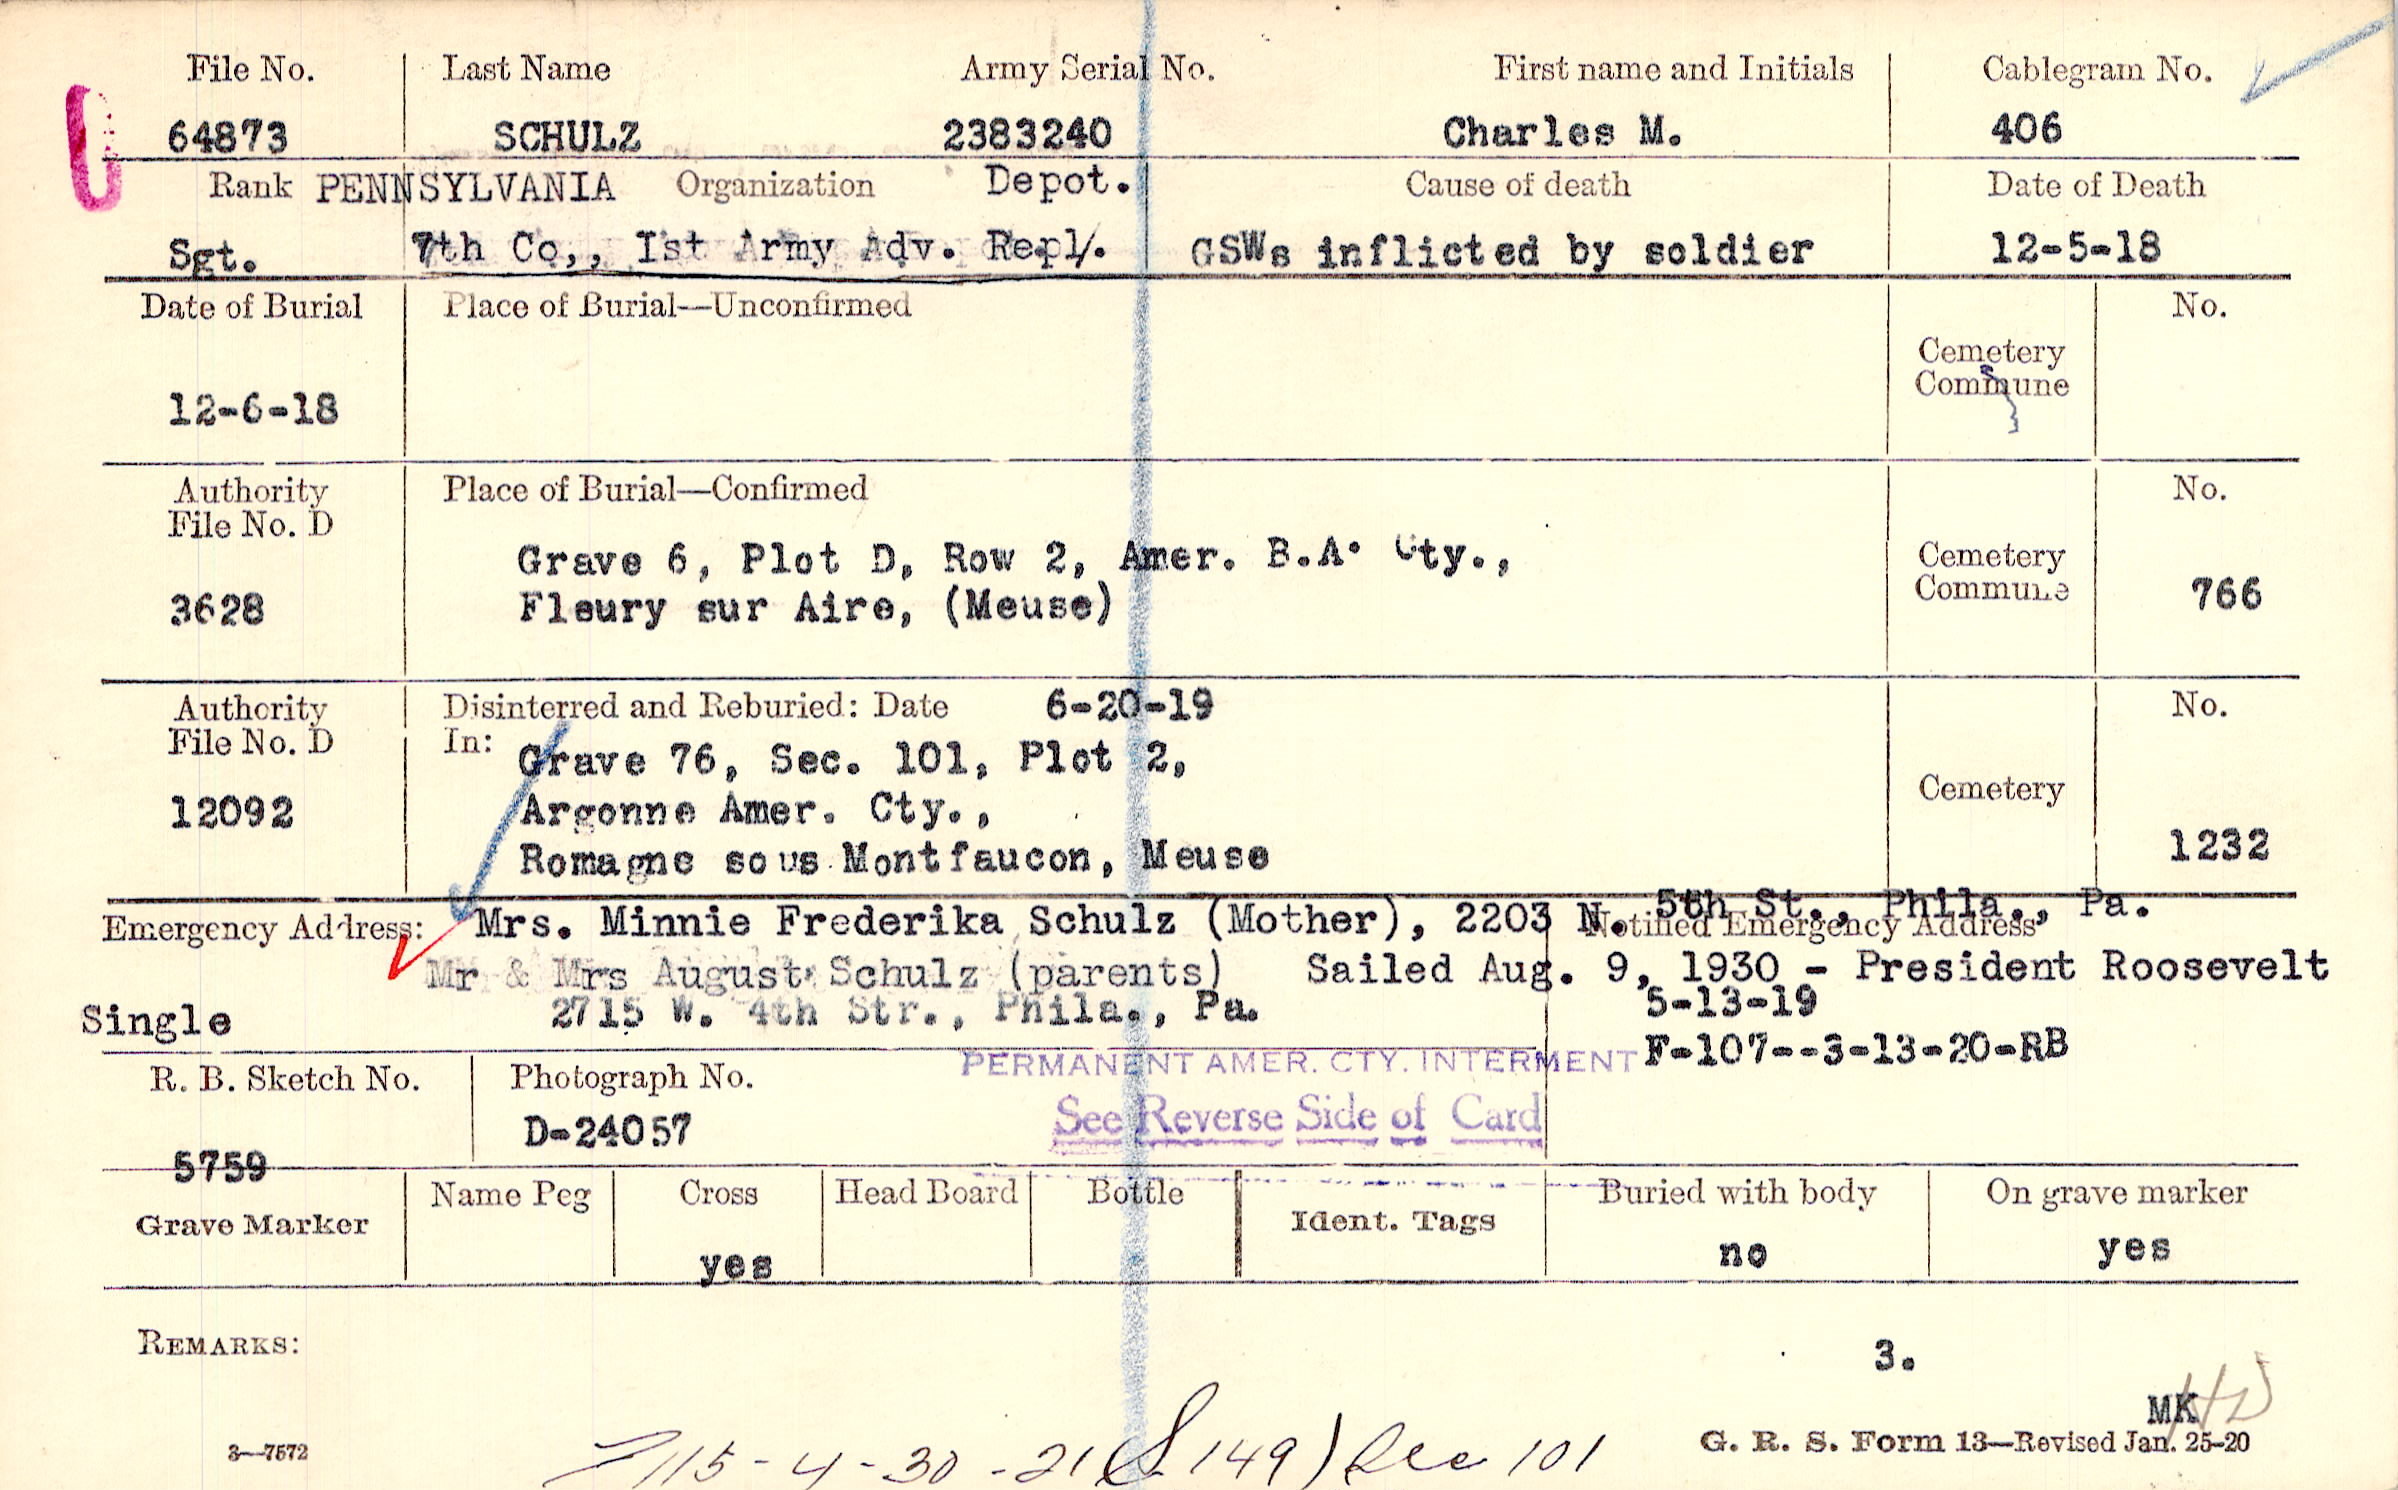 File No. Last Name Army Serial No. First name and Initials Cablegram No.
64873 SCHULZ 2383240 Charles M. 406
Rank PENNSYLVANIA Organization Depot. Cause of death Date of Death
Sgt. 7th Co,, Ist Army Adv. Repl. GSWs inflicted by soldier 12-5-18
Date of Burial Place of Burial—Unconfirmed No.
Cemetery
Commune
12-6-18
Authority Place of Burial—Confirmed No.
File No. D
Grave 6, Plot D, Row 2, Amer. B.A. Cty., Cemetery
3628 Fleury sur Aire, (Meuse) Commune 766
Authority Disinterred and Reburied: Date 6-20-19 No.
File No. D In: Grave 76, Sec. 101, Plot 2,
12092 Argonne Amer. Cty., Cemetery
Romagne sous Montfaucon, Meuse 1232
Emergency Address: Mrs. Minnie Frederika Schulz (Mother), 2203 N. 5th St., Phila., Pa.
Notified Emergency Address
Mr & Mrs August Schulz (parents) Sailed Aug. 9, 1930 - President Roosevelt
Single 2715 W. 4th Str., Phila., Pa. 5-13-19
PERMANENT AMER. CTY. INTERMENT F-107--3-13-20-RB
R. B. Sketch No. Photograph No.
See Reverse Side of Card
5759 D-24057
Grave Marker Name Peg Cross Head Board Bottle Ident. Tags Buried with body On grave marker
yes no yes
REMARKS: 3.
MK
3—7572 115-4-30-21 (S.149) Sec 101 G. R. S. Form 13—Revised Jan. 25-20